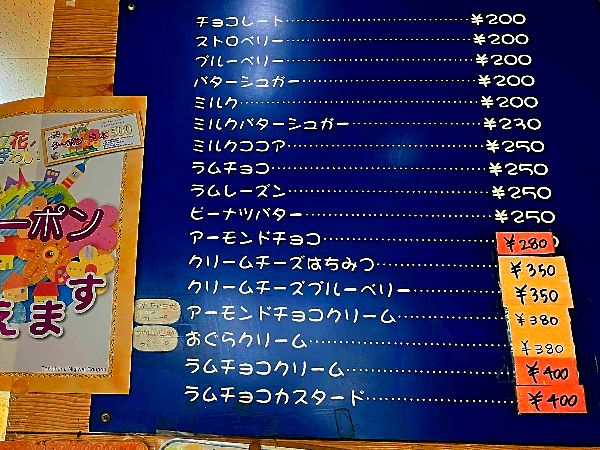 チョコレート ¥200
ストロベリー ¥200
ブルーベリー ¥200
バターシュガー ¥200
ミルク ¥200
ミルクバターシュガー ¥230
ミルクココア ¥250
ラムチョコ ¥250
ラムレーズン ¥250
ピーナツバター ¥250
アーモンドチョコ ¥280
クリームチーズはちみつ ¥350
クリームチーズブルーベリー ¥350
アーモンドチョコクリーム ¥380
おぐらクリーム ¥380
ラムチョコクリーム ¥400
ラムチョコカスタード ¥400
花!
500
ーポン
えます